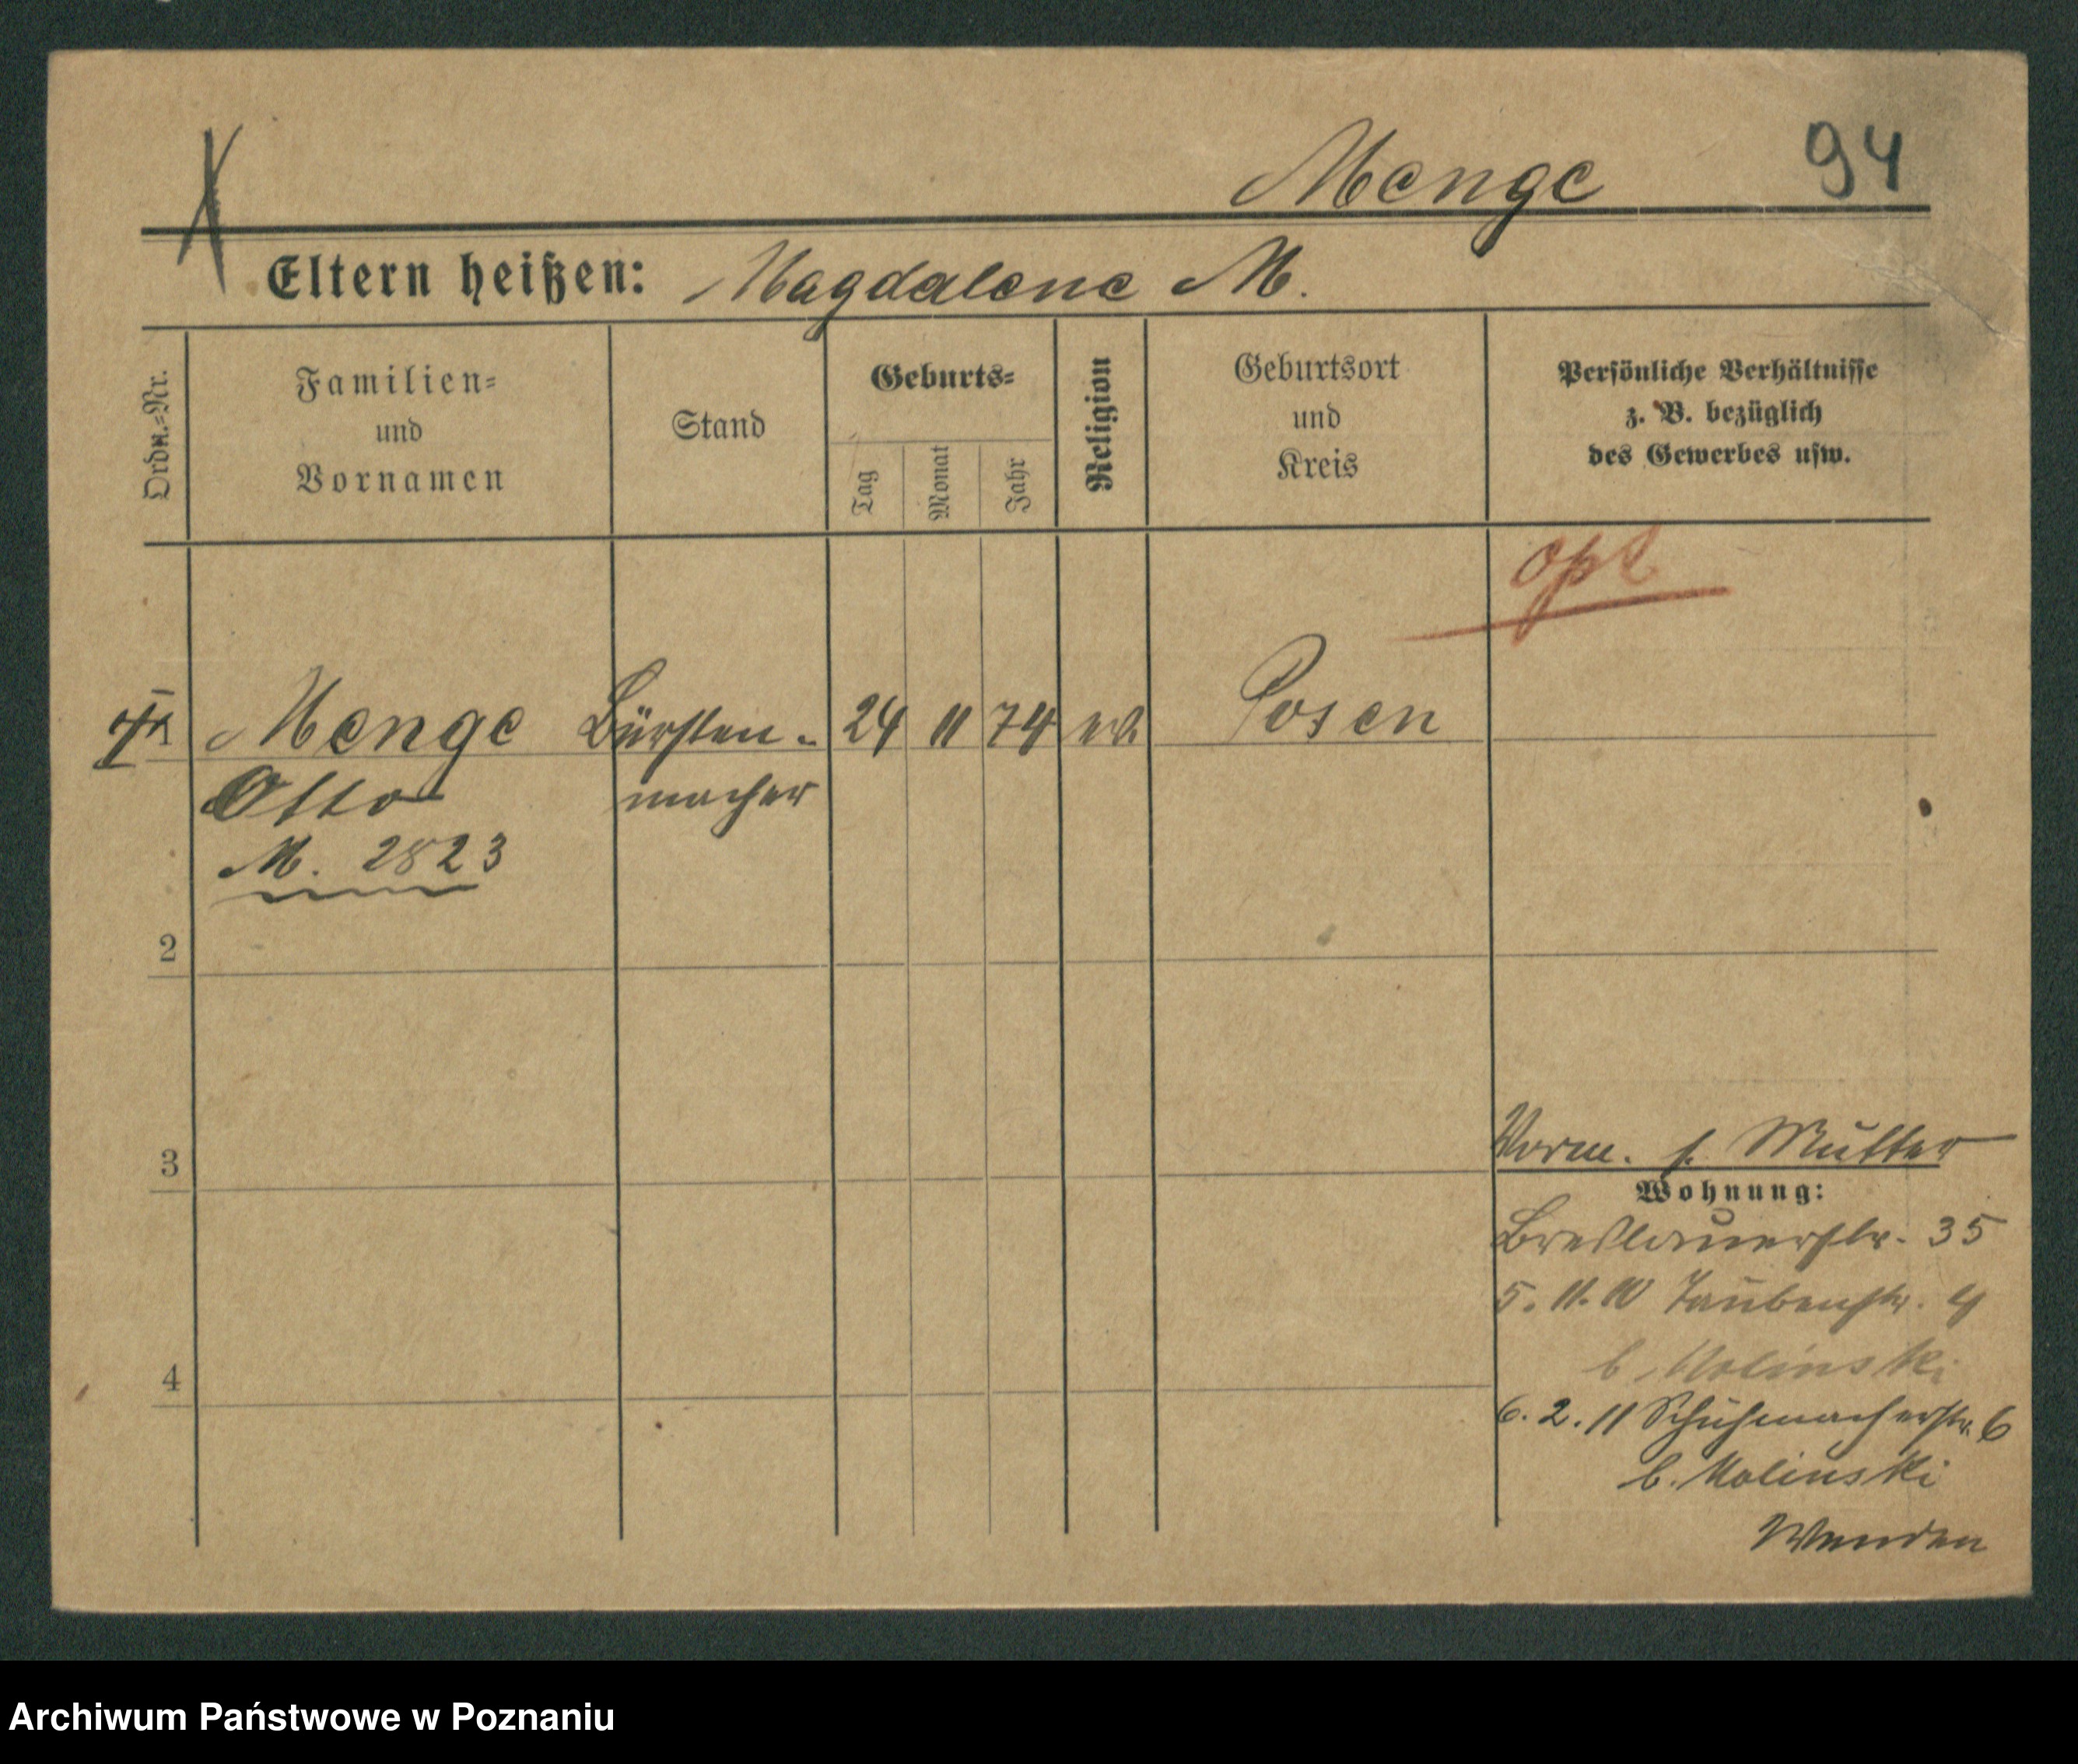 Menge 94
Eltern heißen: Magdalene M.
Ordn.=Nr.
Familien=
und
Vornamen
Stand
Geburts=
Tag
Monat
Jahr
Religion
Geburtsort
und
Kreis
Persönliche Verhältnisse
z. B. bezüglich
des Gewerbes usw.
Menge Bürsten- 24 11 74 Posen
Otto macher
M. 2823
2
3
4
Vorm. s. Mutter
Wohnung:
Breslauerstr. 35
5. 11. 10 Taubenstr. 4
b. Molinski
6. 2. 11 Schuhmacherstr. 6
b. Molinski
Archiwum Państwowe w Poznaniu